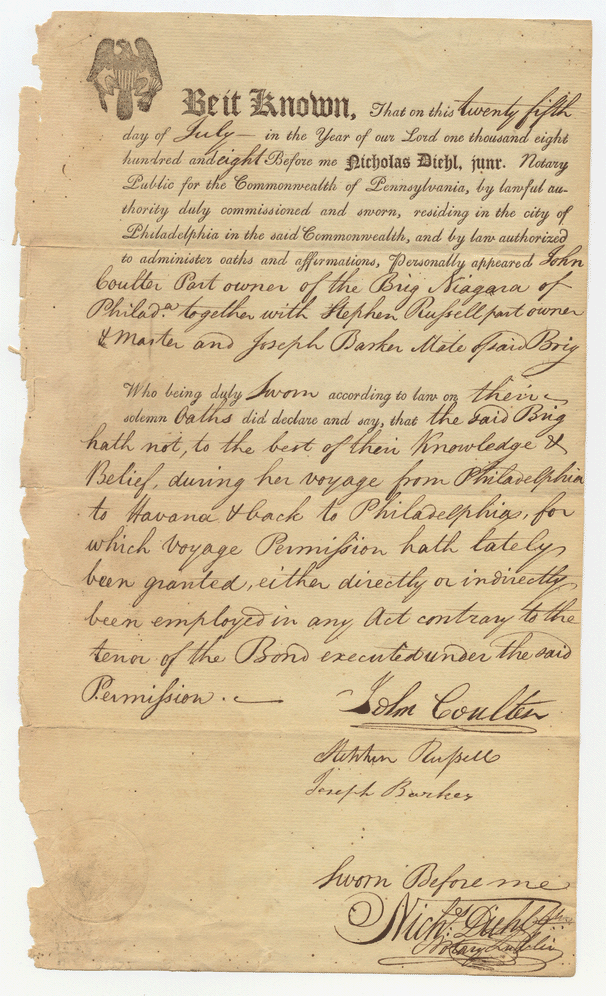 Be it Known, That on this twenty fifth
day of July — in the Year of our Lord one thousand eight
hundred and eight Before me Nicholas Diehl, junr. Notary
Public for the Commonwealth of Pennsylvania, by lawful au-
thority duly commissioned and sworn, residing in the city of
Philadelphia in the said Commonwealth, and by law authorized
to administer oaths and affirmations, Personally appeared John
Coulter Part owner of the Brig Niagara of
Philada. together with Stephen Russell part owner
& Master and Joseph Barker Mate of said Brig
Who being duly Sworn according to law on their
solemn Oaths did declare and say, that the said Brig
hath not, to the best of their Knowledge &
Belief, during her voyage from Philadelphia
to Havana & back to Philadelphia, for
which voyage Permission hath lately
been granted, either directly or indirectly
been employed in any Act contrary to the
tenor of the Bond executed under the said
Permission. —
John Coulter
Stephen Russell
Joseph Barker
Sworn Before me
Nichs. Diehl junr
Notary Public